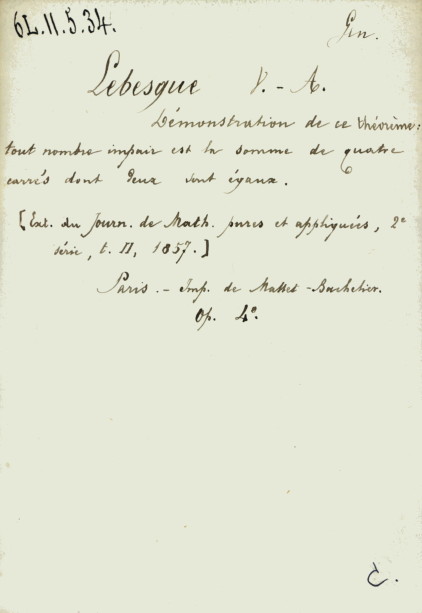 6L.11.5.34.
Gen.
Lebesgue V.-A.
Démonstration de ce théorème:
tout nombre impair est la somme de quatre
carrés dont deux sont égaux.
[Ext. du Journ. de Math. pures et appliquées, 2e
série, t. II, 1857.]
Paris. - Imp. de Mallet-Bachelier.
Op. 4°.